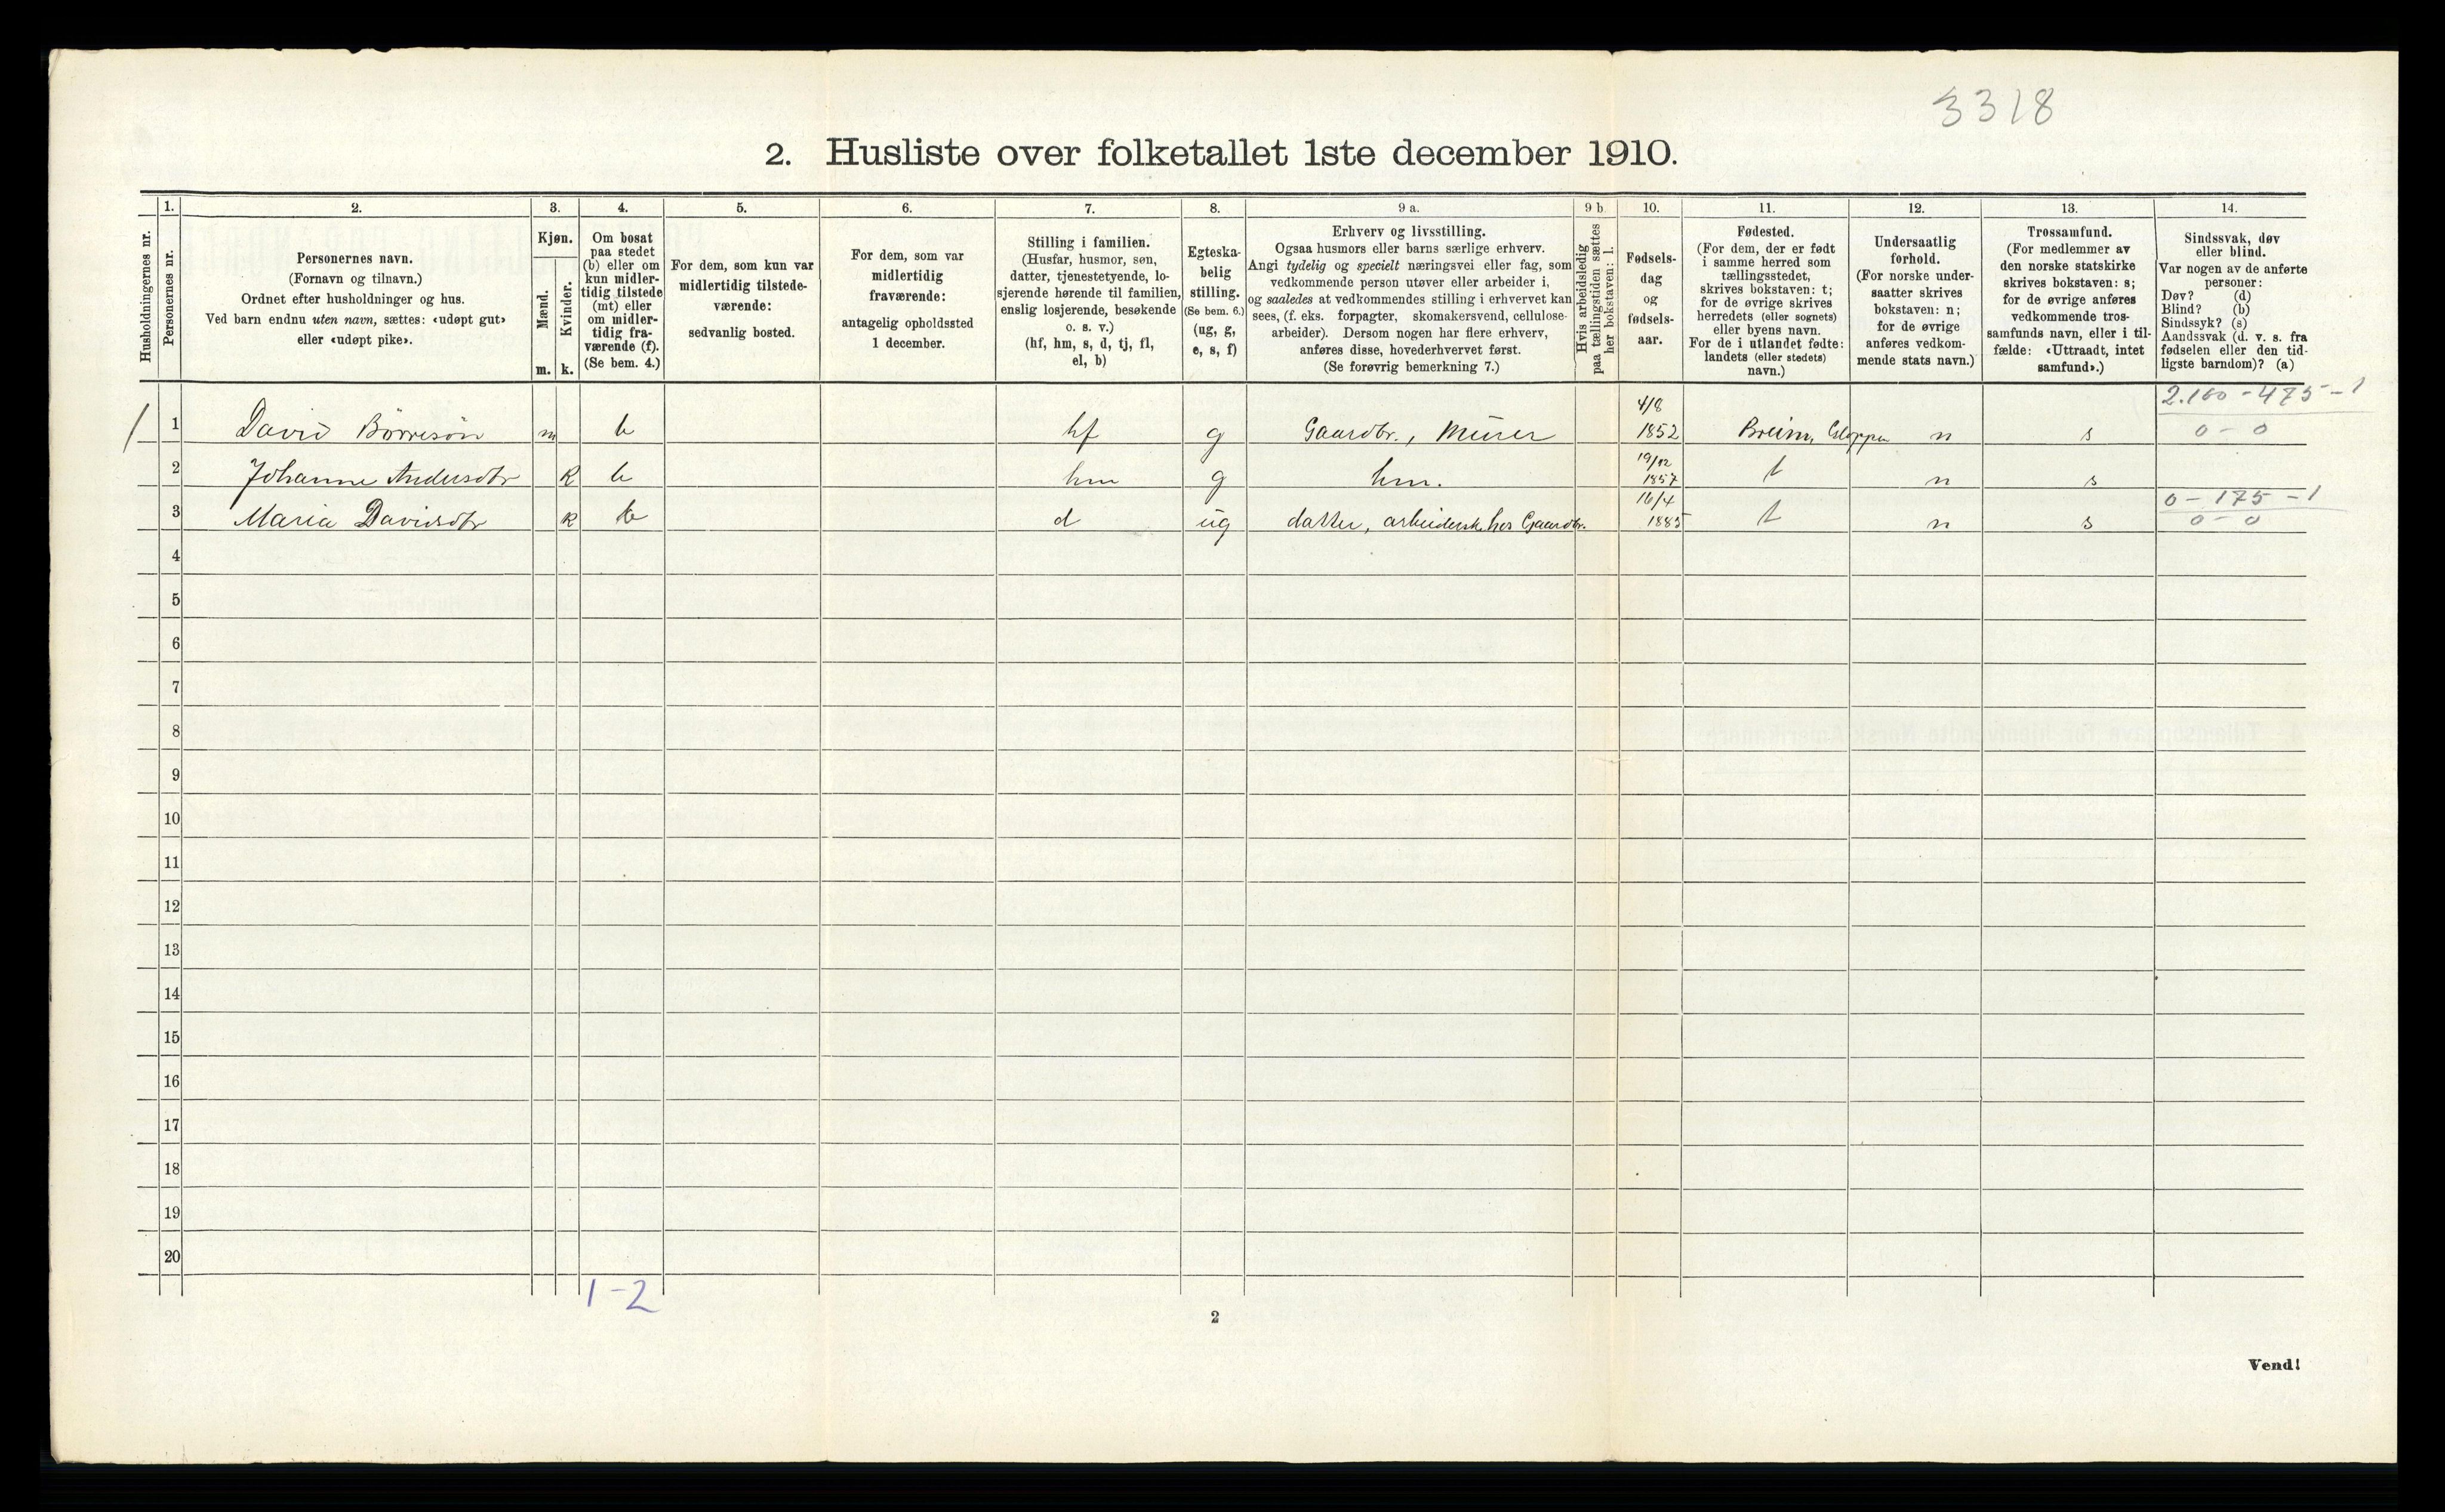 3318
2. Husliste over folketallet 1ste december 1910.
Husholdningernes nr.
1.
Personernes nr.
2.
Personernes navn.
(Fornavn og tilnavn.)
Ordnet efter husholdninger og hus.
Ved barn endnu uten navn, sættes: «udøpt gut»
eller «udøpt pike».
3.
Kjøn.
Mænd.
Kvinder.
m. k.
4.
Om bosat
paa stedet
(b) eller om
kun midler-
tidig tilstede
(mt) eller
om midler-
tidig fra-
værende (f).
(Se bem. 4.)
5.
For dem, som kun var
midlertidig tilstede-
værende:
sedvanlig bosted.
6.
For dem, som var
midlertidig
fraværende:
antagelig opholdssted
1 december.
7.
Stilling i familien.
(Husfar, husmor, søn,
datter, tjenestetyende, lo-
sjerende hørende til familien,
enslig losjerende, besøkende
o. s. v.)
(hf, hm, s, d, tj, fl,
el, b)
8.
Egteska-
belig
stilling.
(Se bem. 6.)
(ug, g,
e, s, f)
9 a.
Erhverv og livsstilling.
Ogsaa husmors eller barns særlige erhverv.
Angi tydelig og specielt næringsvei eller fag, som
vedkommende person utøver eller arbeider i,
og saaledes at vedkommendes stilling i erhvervet kan
sees, (f. eks. forpagter, skomakersvend, cellulose-
arbeider). Dersom nogen har flere erhverv,
anføres disse, hovederhvervet først.
(Se forøvrig bemerkning 7.)
9 b
Hvis arbeidsledig
paa tællingstiden sættes
her bokstaven: l.
10.
Fødsels-
dag
og
fødsels-
aar.
11.
Fødested.
(For dem, der er født
i samme herred som
tællingsstedet,
skrives bokstaven: t;
for de øvrige skrives
herredets (eller sognets)
eller byens navn.
For de i utlandet fødte:
landets (eller stedets)
navn.)
12.
Undersaatlig
forhold.
(For norske under-
saatter skrives
bokstaven: n;
for de øvrige
anføres vedkom-
mende stats navn.)
13.
Trossamfund.
(For medlemmer av
den norske statskirke
skrives bokstaven: s;
for de øvrige anføres
vedkommende tros-
samfunds navn, eller i til-
fælde: «Uttraadt, intet
samfund».)
14.
Sindssvak, døv
eller blind.
Var nogen av de anførte
personer:
Døv? (d)
Blind? (b)
Sindssyk? (s)
Aandssvak (d. v. s. fra
fødselen eller den tid-
ligste barndom)? (a)
2.100 - 475 - 1
1 1 David Börresön m b hf g Gaardbr., Mürer 4/8 1852 Breim, Gloppen n s 0 - 0
2 Johanne Andersdtr k b hm g hm. 19/12 1857 t n s
0 - 175 - 1
3 Maria Davidsdtr k b d ug datter, arbeidersk. hos Gaardbr. 16/4 1885 t n s 0 - 0
4
5
6
7
8
9
10
11
12
13
14
15
16
17
18
19
20
1-2
2
Vend!